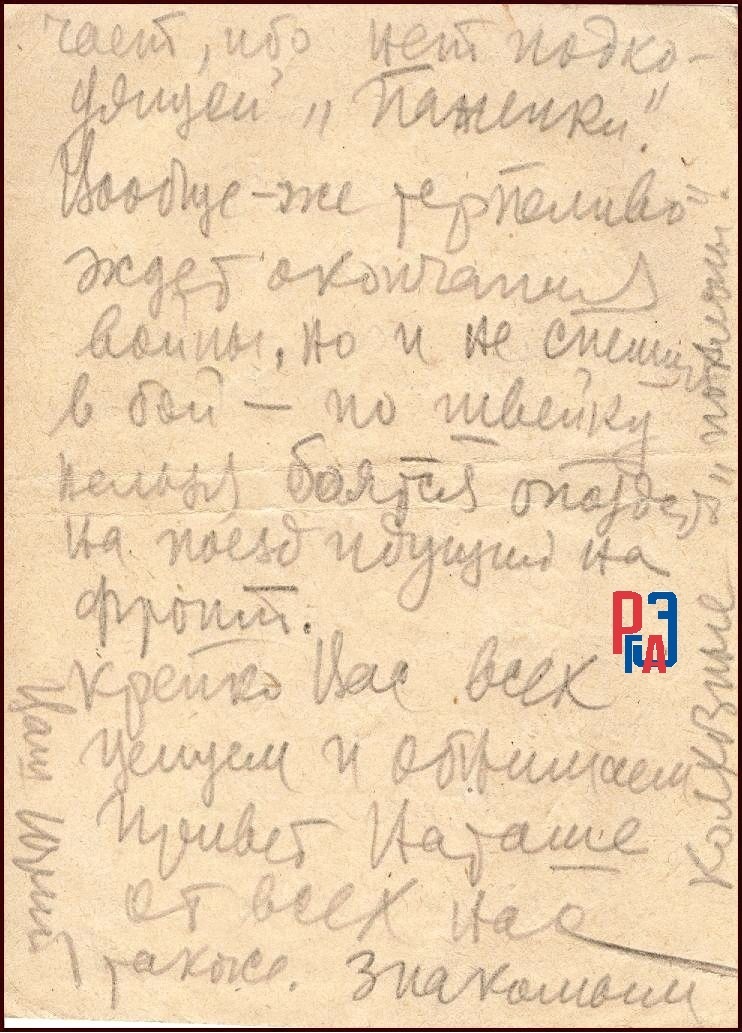 чает, ибо нет подхо-
дящей „Паненки".
Вообще-же терпеливо
ждет окончания
войны, но и не спешит
в бой — по швейку
нельзя боятся опоздать
на поезд идущий на
фронт.
Крепко Вас всех
целуем и обнимаем
Привет Наташе
от всех нас
также. Знакомым
колхозные „поклоны".
Ваш Юрий
РГАЭ